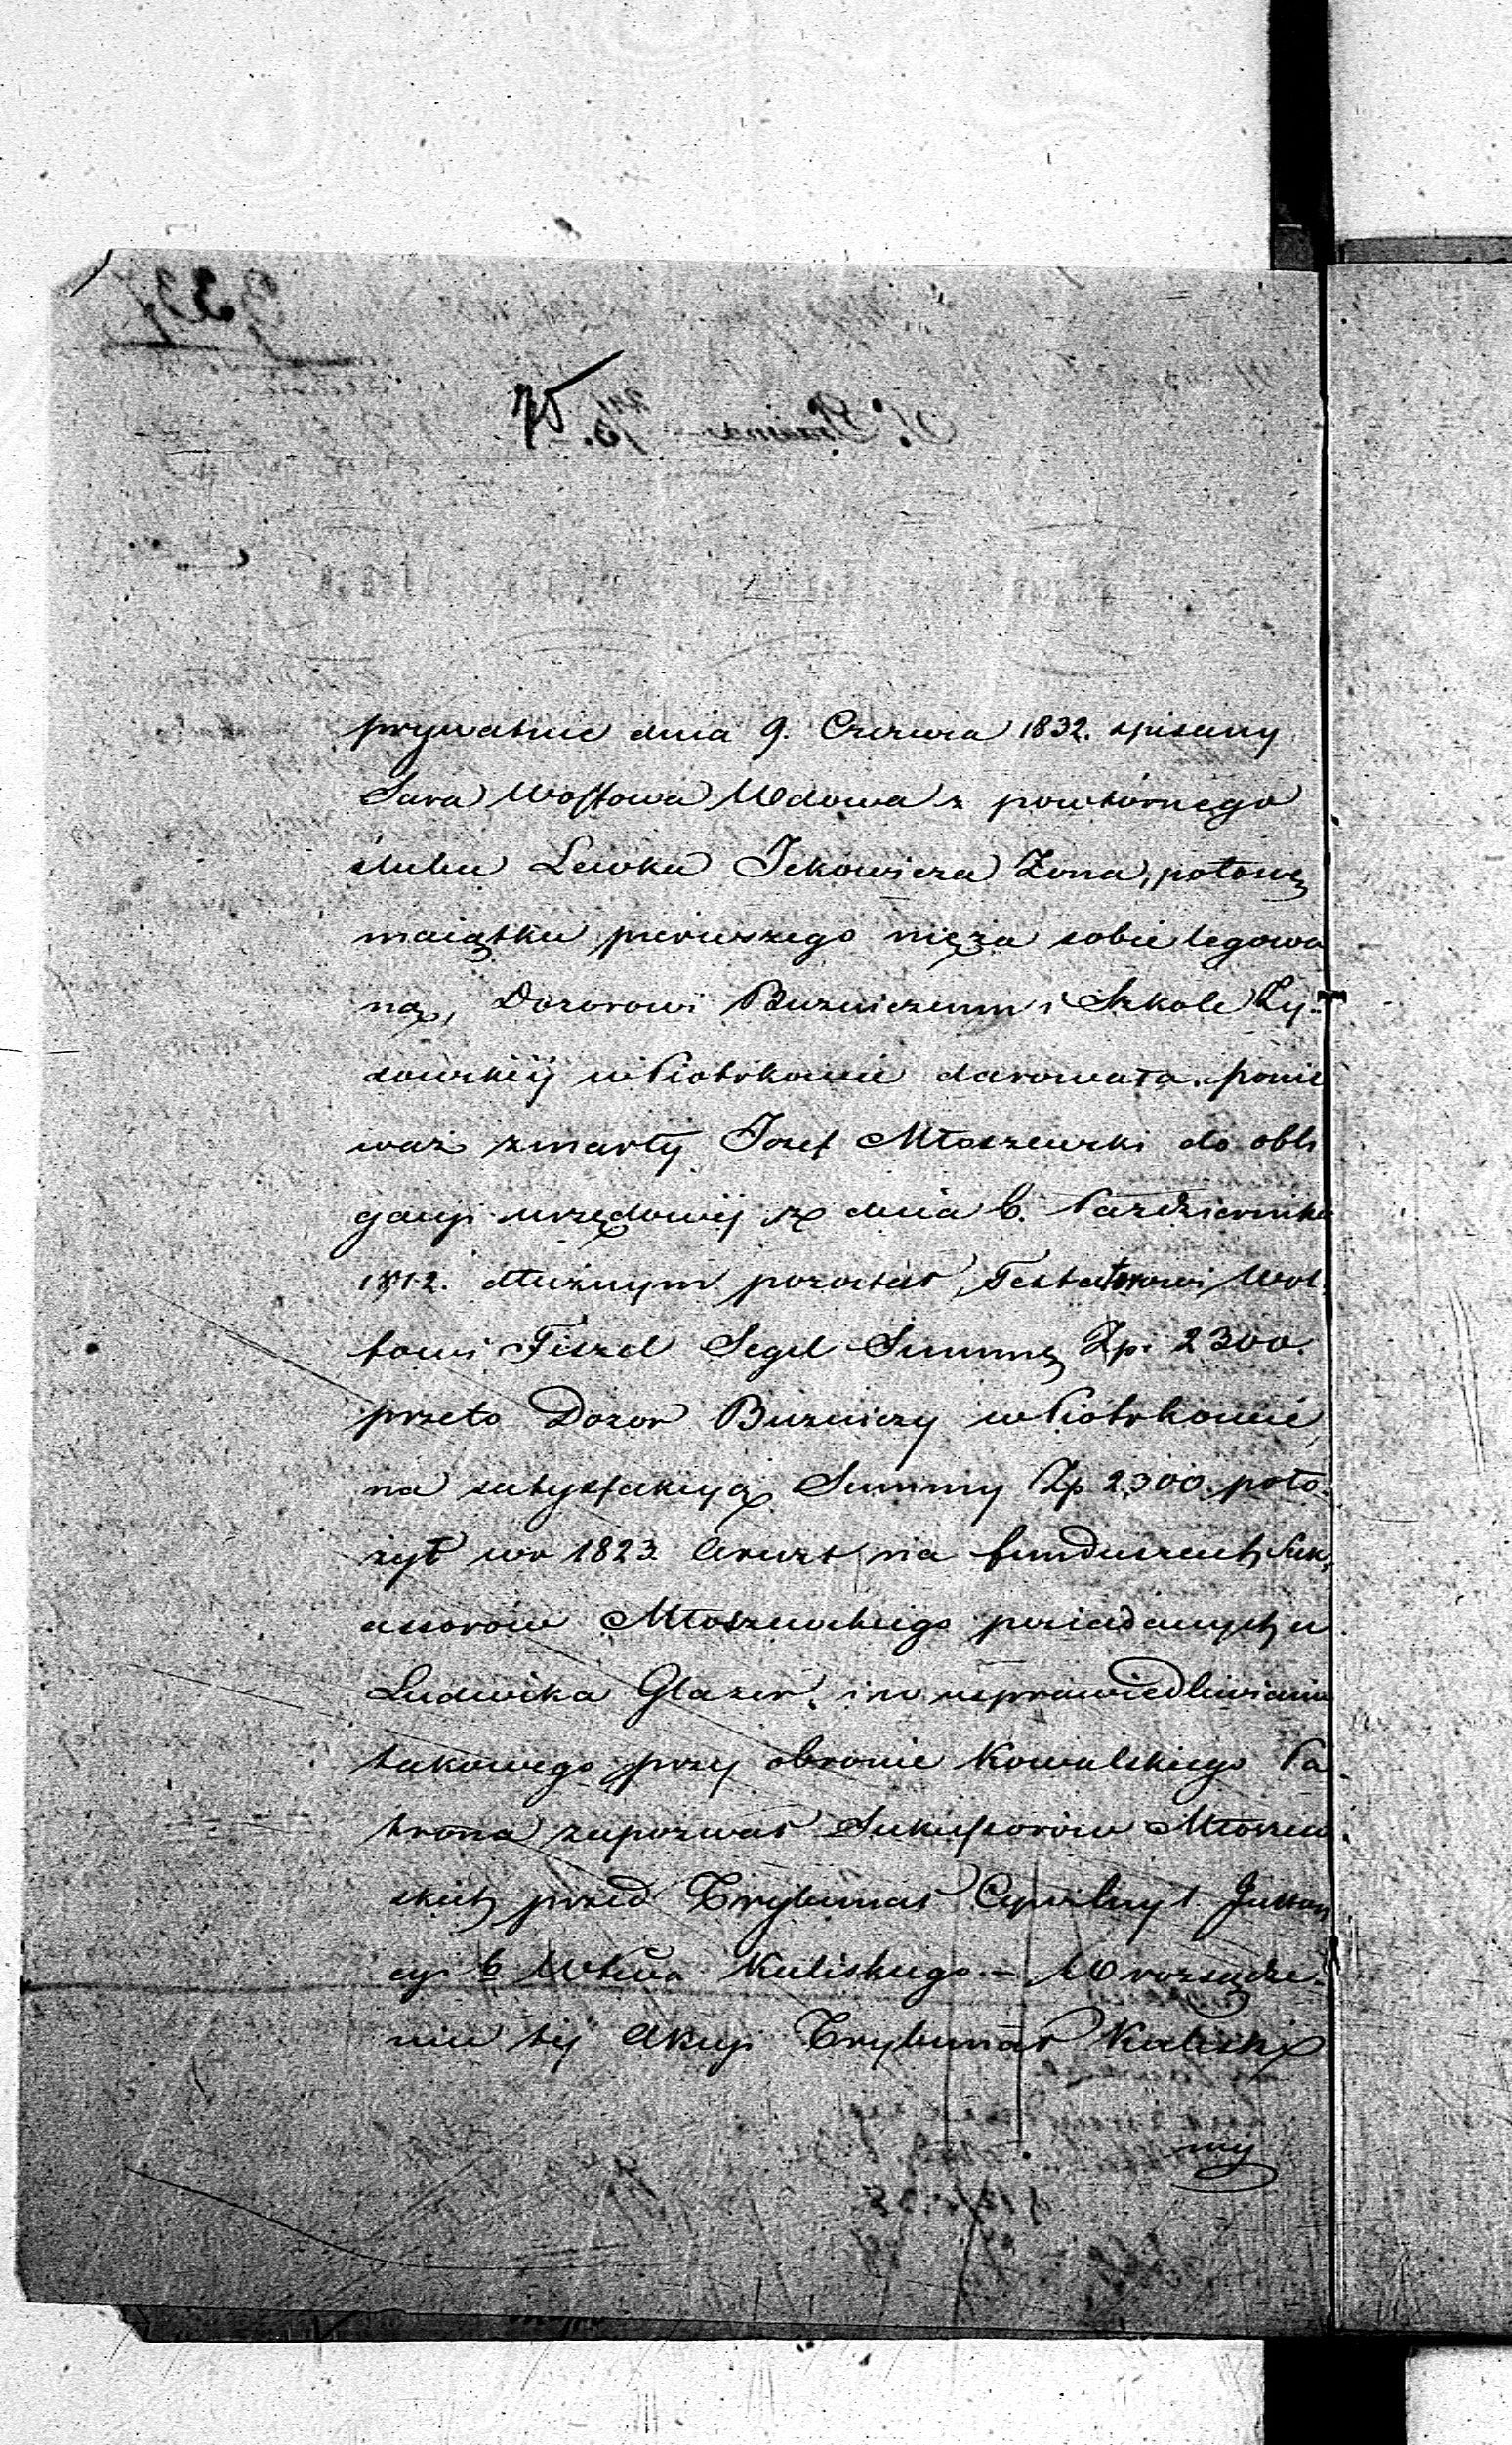 prywatnie dnia 9. Czerwca 1832. spisany
Sara Wolffowa Wdowa z powtórnego
ślubu Lewka Ickowicza Żona, połowę
maiątku pierwszego męża sobie legowa
ną, Dozorowi Bużniczemu i Szkole Ży-
dowskiéy w Piotrkowie darowała. ponie
waż zmarły Jozef Młoszewski do obli
gacyi urzędowéy z dnia 6. Października
1812. dłużnym pozostał Testatorowi Wol-
fowi Fiszel Segel Summę Zp. 2300.
przeto Dozor Bużniczy w Piotrkowie,
na satysfakcyą Summy Zp 2300. poło-
żył w r 1823 Areszt na funduszach Suk-
cessorów Młoszewskiego posiadanych u
Ludwika Glazer. i w usprawiedliwieniu
takowego przy obronie Kowalskiego Pa
trona zapozwał Sukcessorów Młoszew
skich przed Trybunał Cywilny 1. Jnstan
cyi b Wtwa Kaliskiego. – W rozsądze-
niu téy Akcyi Trybunał Kaliski